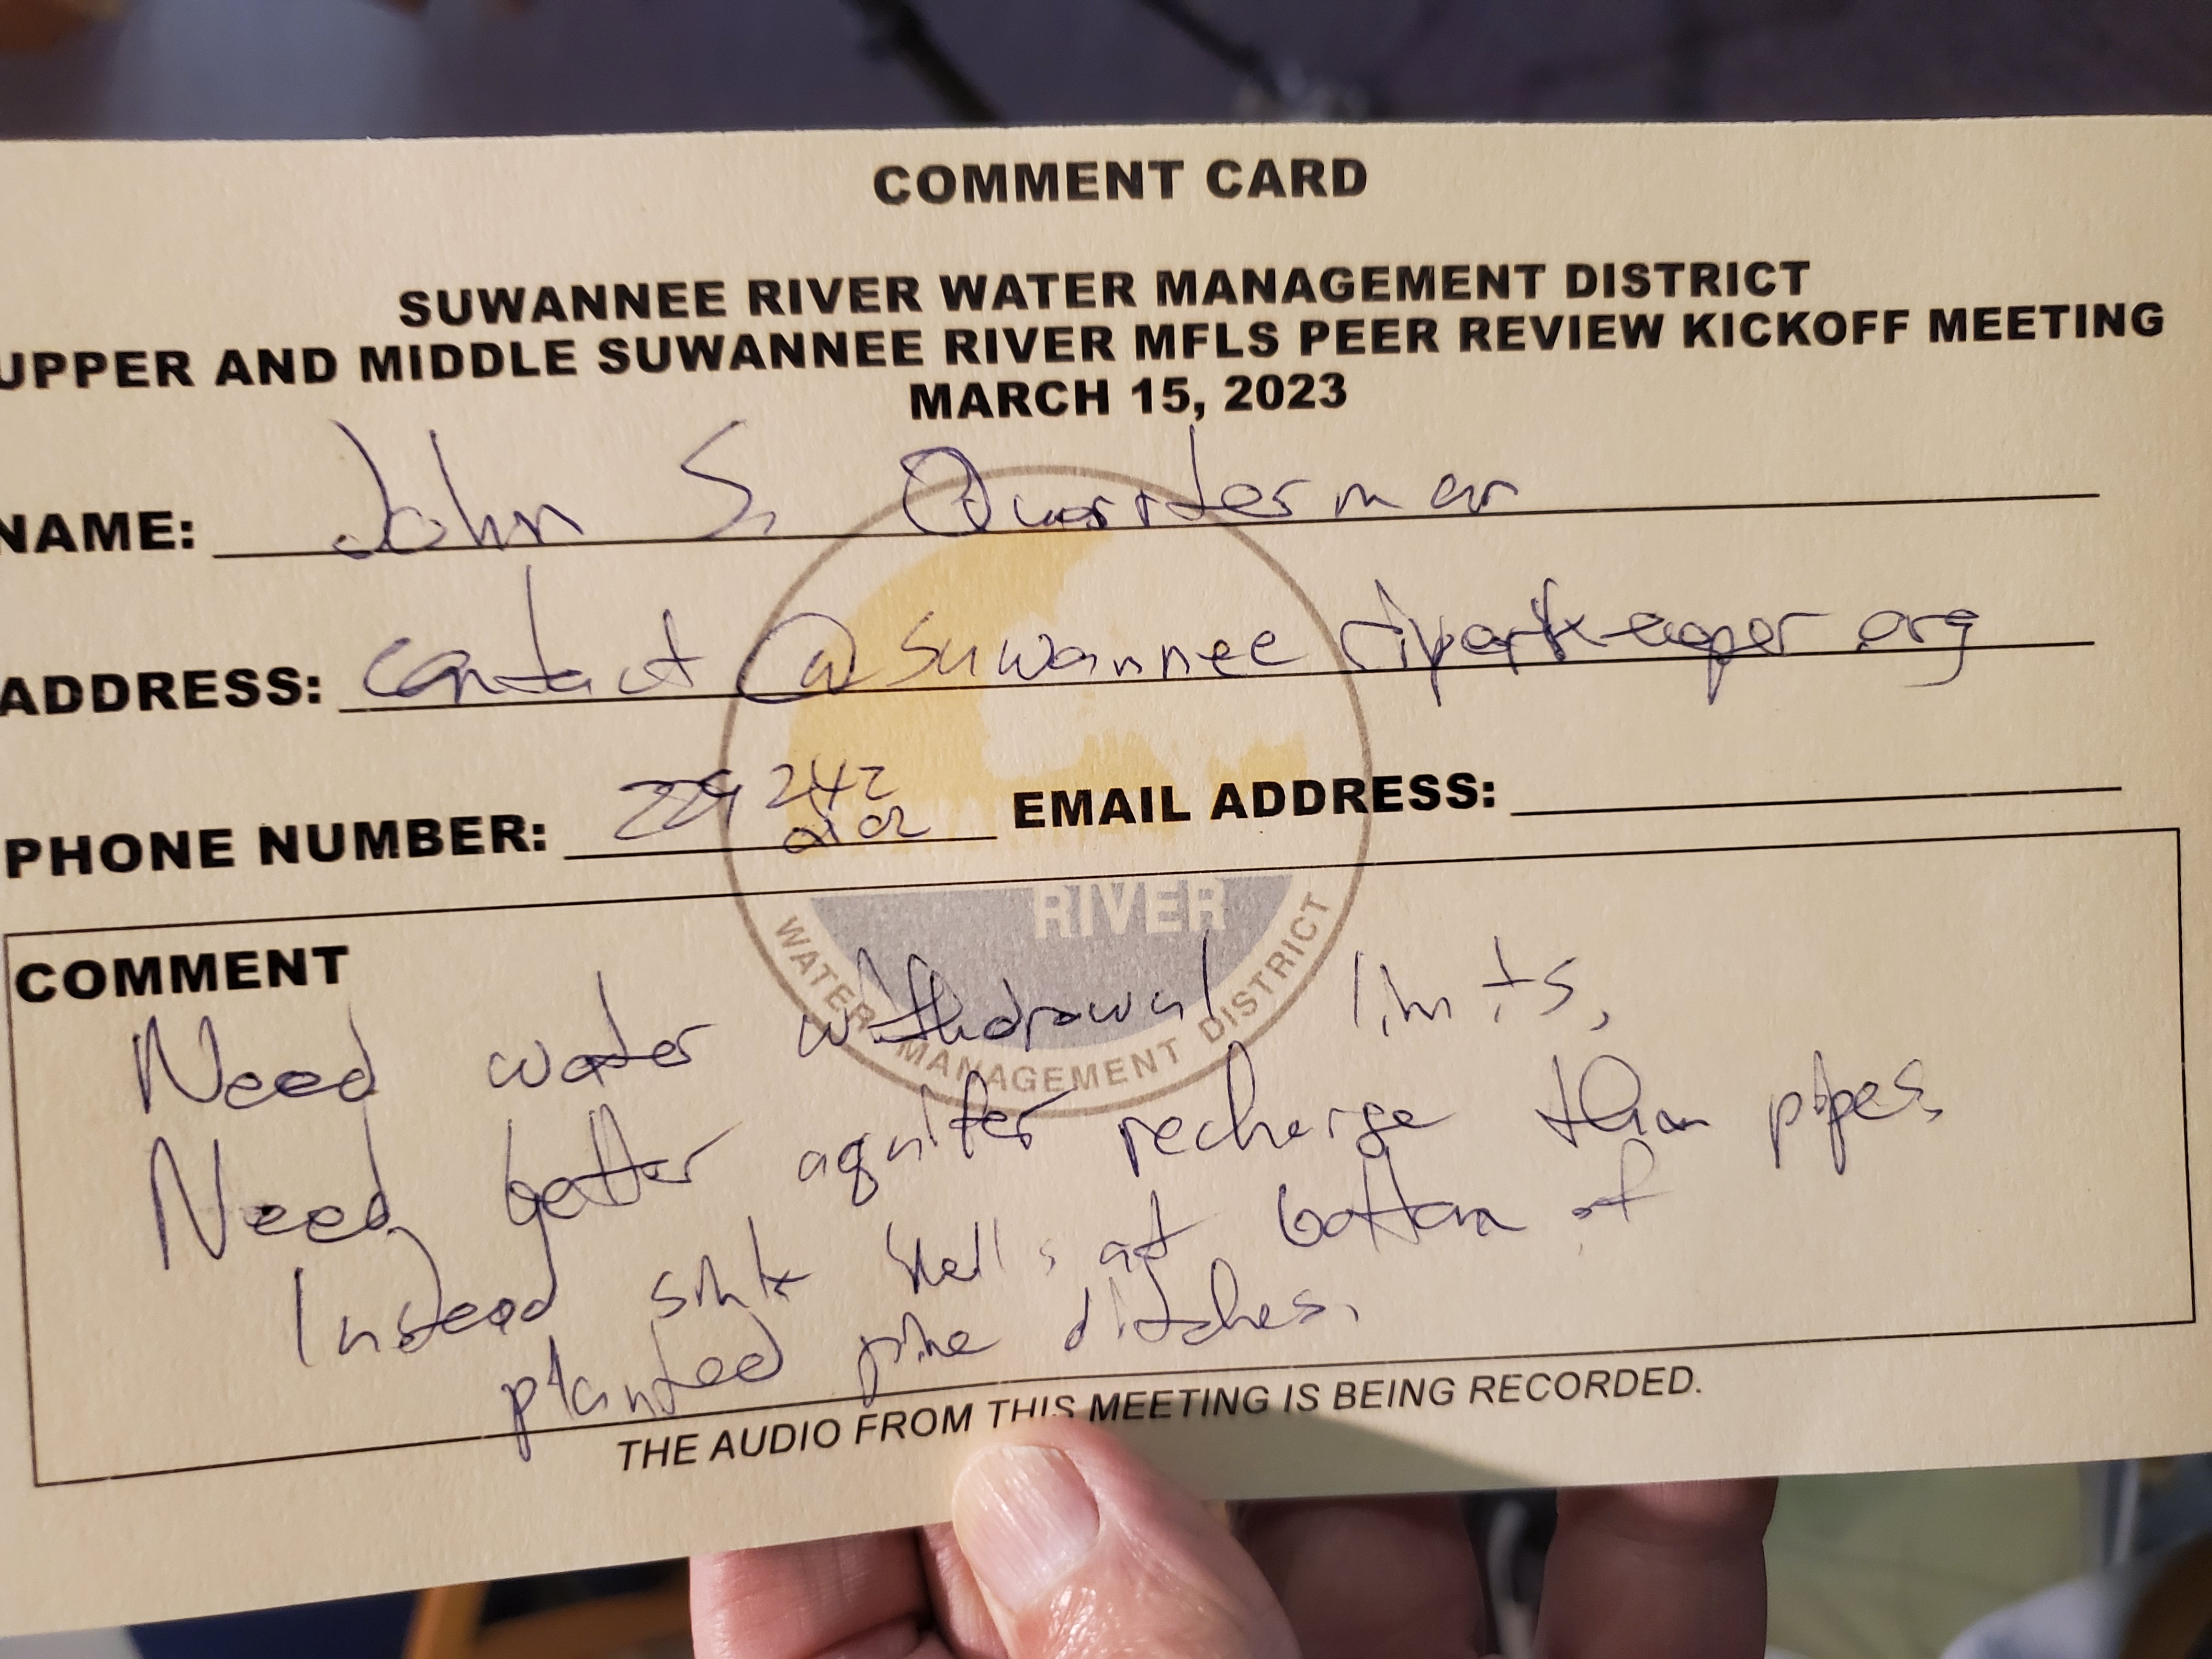 COMMENT CARD
SUWANNEE RIVER WATER MANAGEMENT DISTRICT
UPPER AND MIDDLE SUWANNEE RIVER MFLS PEER REVIEW KICKOFF MEETING
MARCH 15, 2023
NAME: John S. Quarterman
ADDRESS: contact@suwanneeriverkeeper.org
PHONE NUMBER: 229 242 0102 EMAIL ADDRESS:
RIVER
WATER MANAGEMENT DISTRICT
COMMENT
Need water withdrawal limits.
Need better aquifer recharge than pipes.
Instead sink wells at bottom of
planted pine ditches.
THE AUDIO FROM THIS MEETING IS BEING RECORDED.